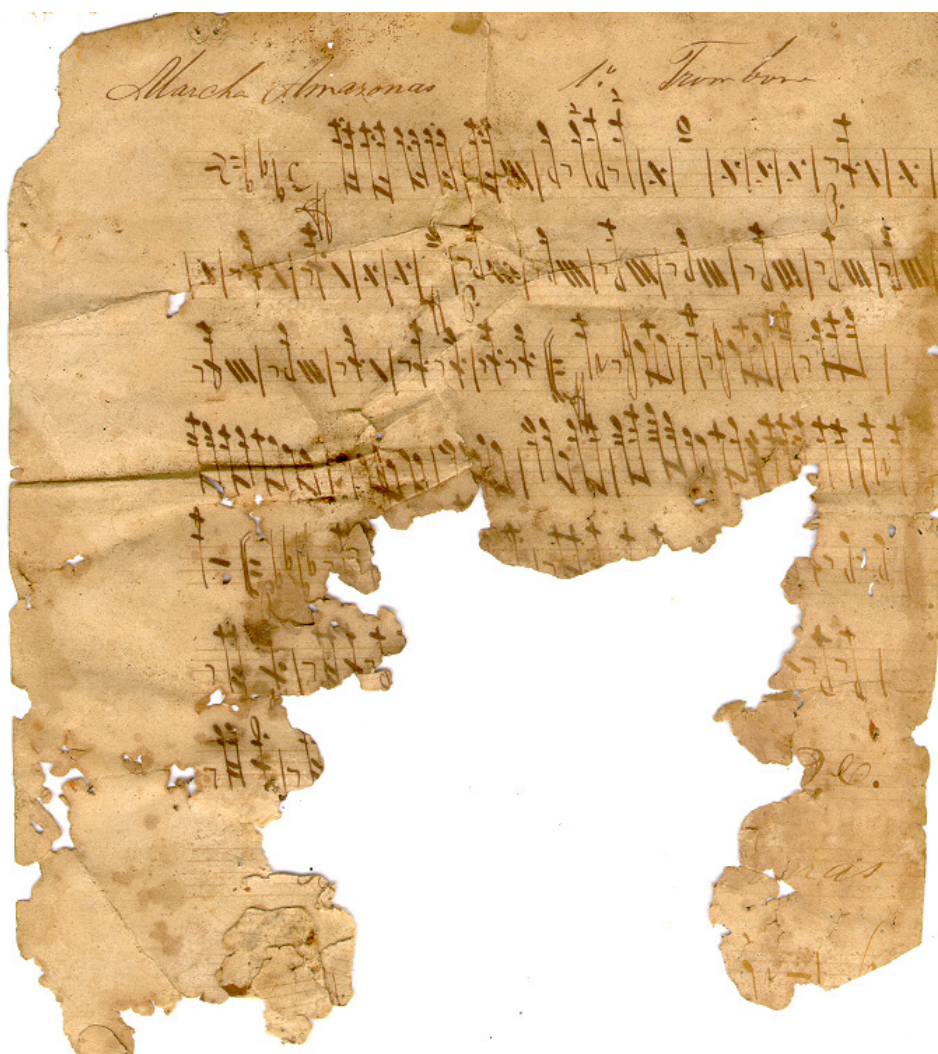 Marcha Amazonas 1º Trombone
D.C.